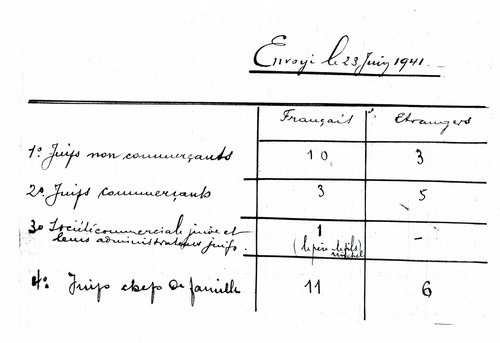 Envoyé le 23 Juin 1941.
Français Etrangers
1º Juifs non commerçants 10 3
2º Juifs commerçants 3 5
3º Société commerciale juive et 1 -
leurs administrateurs juifs. (le père le fils)
4º Juifs chefs de famille 11 6